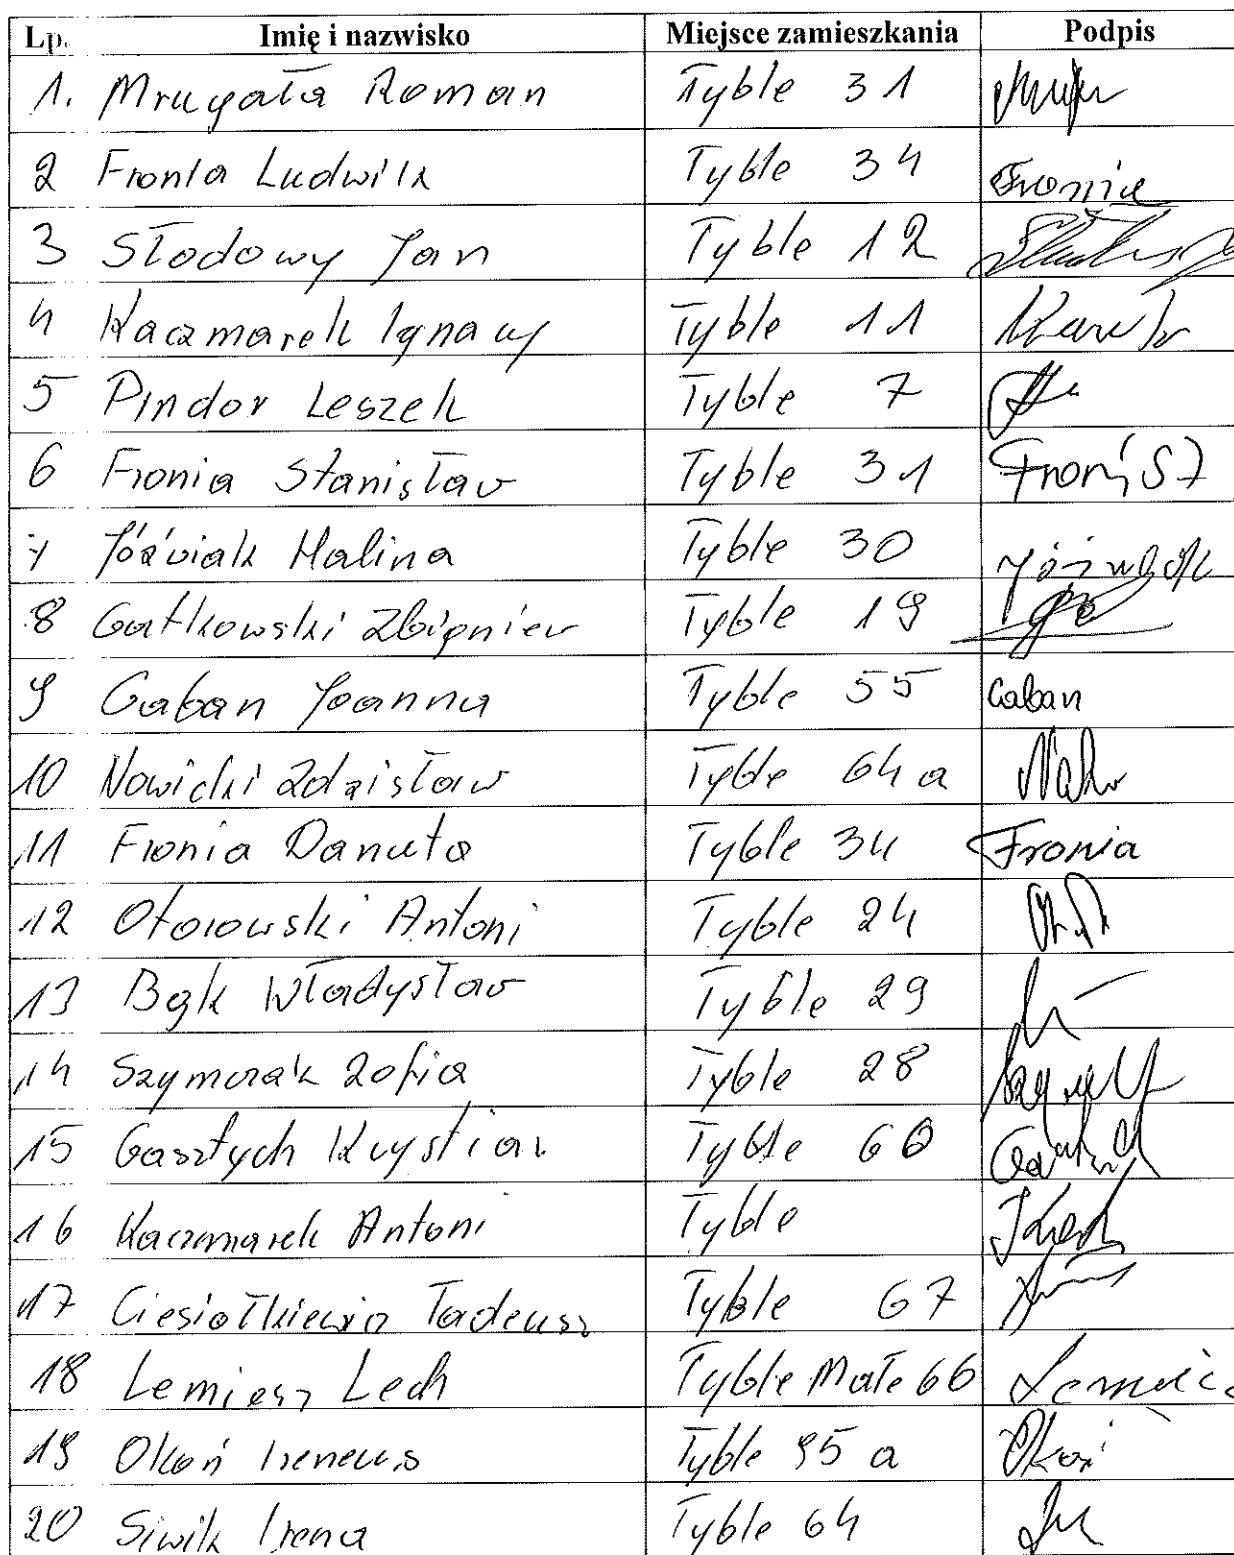 Lp. Imię i nazwisko Miejsce zamieszkania Podpis
1. Mrugała Roman Tyble 31
2 Fronia Ludwik Tyble 34 Fronia
3 Słodowy Jan Tyble 12
4 Kaczmarek Ignacy Tyble 11
5 Pindor Leszek Tyble 7
6 Fronia Stanisław Tyble 31
7 Jóźwiak Halina Tyble 30 Jóźwiak
8 Gątkowski Zbigniew Tyble 19
9 Caban Joanna Tyble 55 Caban
10 Nowicki Zdzisław Tyble 64 a
11 Fronia Danuta Tyble 34 Fronia
12 Otorowski Antoni Tyble 24
13 Bąk Władysław Tyble 29
14 Szymczak Zofia Tyble 28
15 Gasztych Krystian Tyble 60
16 Kaczmarek Antoni Tyble
17 Ciesiołkiewicz Tadeusz Tyble 67
18 Lemiesz Lech Tyble Małe 66
19 Okoń Ireneus Tyble 95 a Okoń
20 Siwik Irena Tyble 64